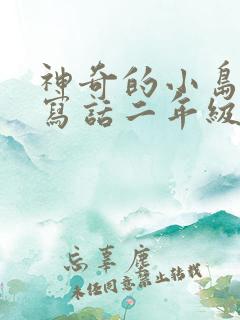 神奇的小島
寫話二年級
忘辜塵
未经同意禁止转载